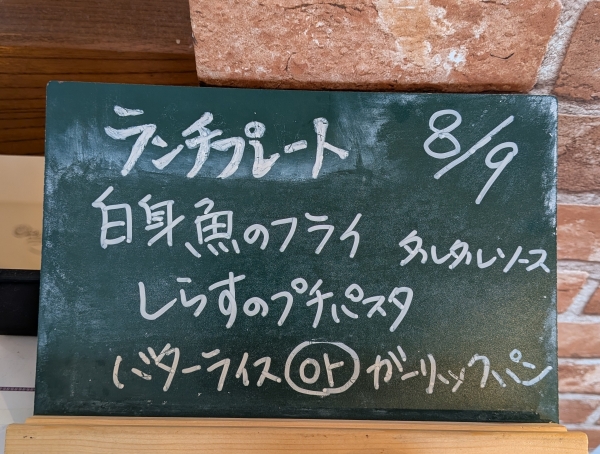 ランチプレート 8/9
白身魚のフライ タルタルソース
しらすのプチパスタ
バターライス or ガーリックパン